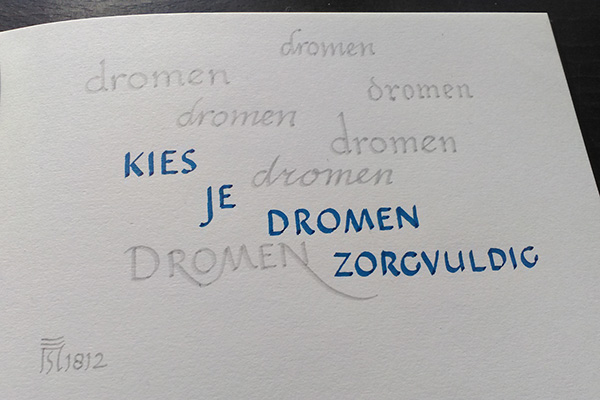 dromen
dromen
dromen
dromen
dromen
KIES
dromen
JE
DROMEN
DROMEN
ZORGVULDIG
1812